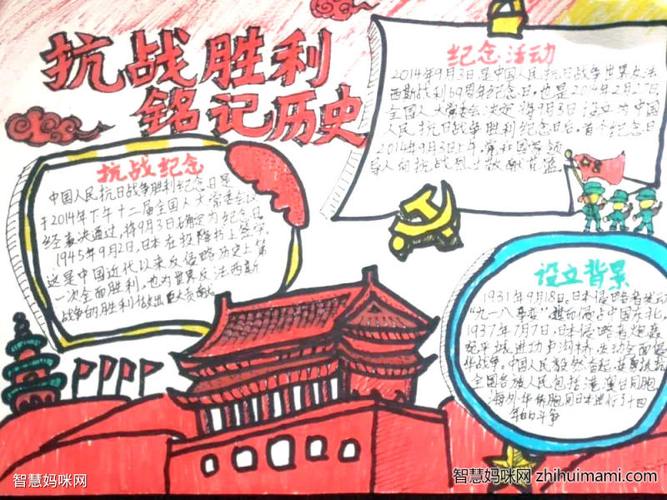 抗战胜利
铭记历史
纪念活动
2014年9月3日是中国人民抗日战争世界反法
西斯战利69周年纪念日,也是2014年2月27日
全国人大常委会决定将9月3日设立为中国
人民抗日战争胜利纪念日后,首个纪念日
2014年9月3日上午
抗战纪念
中国人民抗日战争胜利纪念日是
于2014年下午十二届全国人大常委会以
经表决通过,将9月3日确定为纪念日
1945年9月2日,日本在投降书上签字
这是中国近代以来反侵略历史上第
一次全面胜利,也为世界反法西斯
战争的胜利做出巨大贡献
设立背景
1931年9月18日,日本侵略者发动
"九一八事变",
1937年7月7日,日本侵略者炮轰
全面侵
华战争。中国人民毅然奋起,
全国各族人民包括港澳台同胞
海外华侨同胞同日本进行了十四
年的斗争
智慧妈咪网
智慧妈咪网 zhihuimami.com